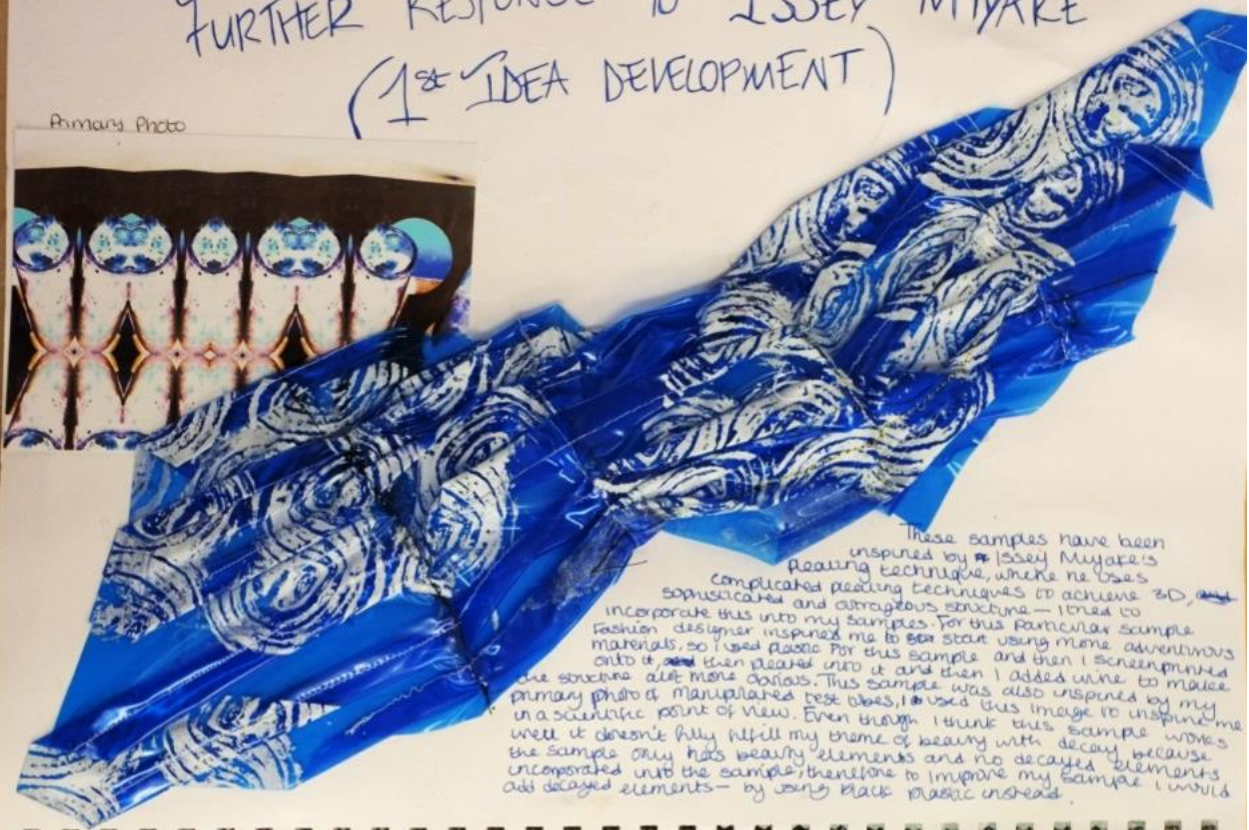 FURTHER RESPONSE TO ISSEY MIYAKE
(1st IDEA DEVELOPMENT)
Primary Photo
These samples have been
inspired by Issey Miyake's
pleating technique, where he uses
complicated pleating techniques to achieve 3D,
sophisticated and outrageous structure - I tried to
incorporate this into my samples. For this particular sample
Fashion designer inspired me to start using more adventurous
materials, so I used plastic for this sample and then I screenprinted
onto it, then pleated into it and then I added wire to make
the structure alot more obvious. This sample was also inspired by my
primary photo of manipulated test tubes, I used this image to inspire me
in a scientific point of view. Even though I think this sample works
well it doesn't fully fulfill my theme of beauty with decay because
the sample only has beauty elements and no decayed elements
incorporated into the sample, therefore to improve my sample I would
add decayed elements - by using black plastic instead.